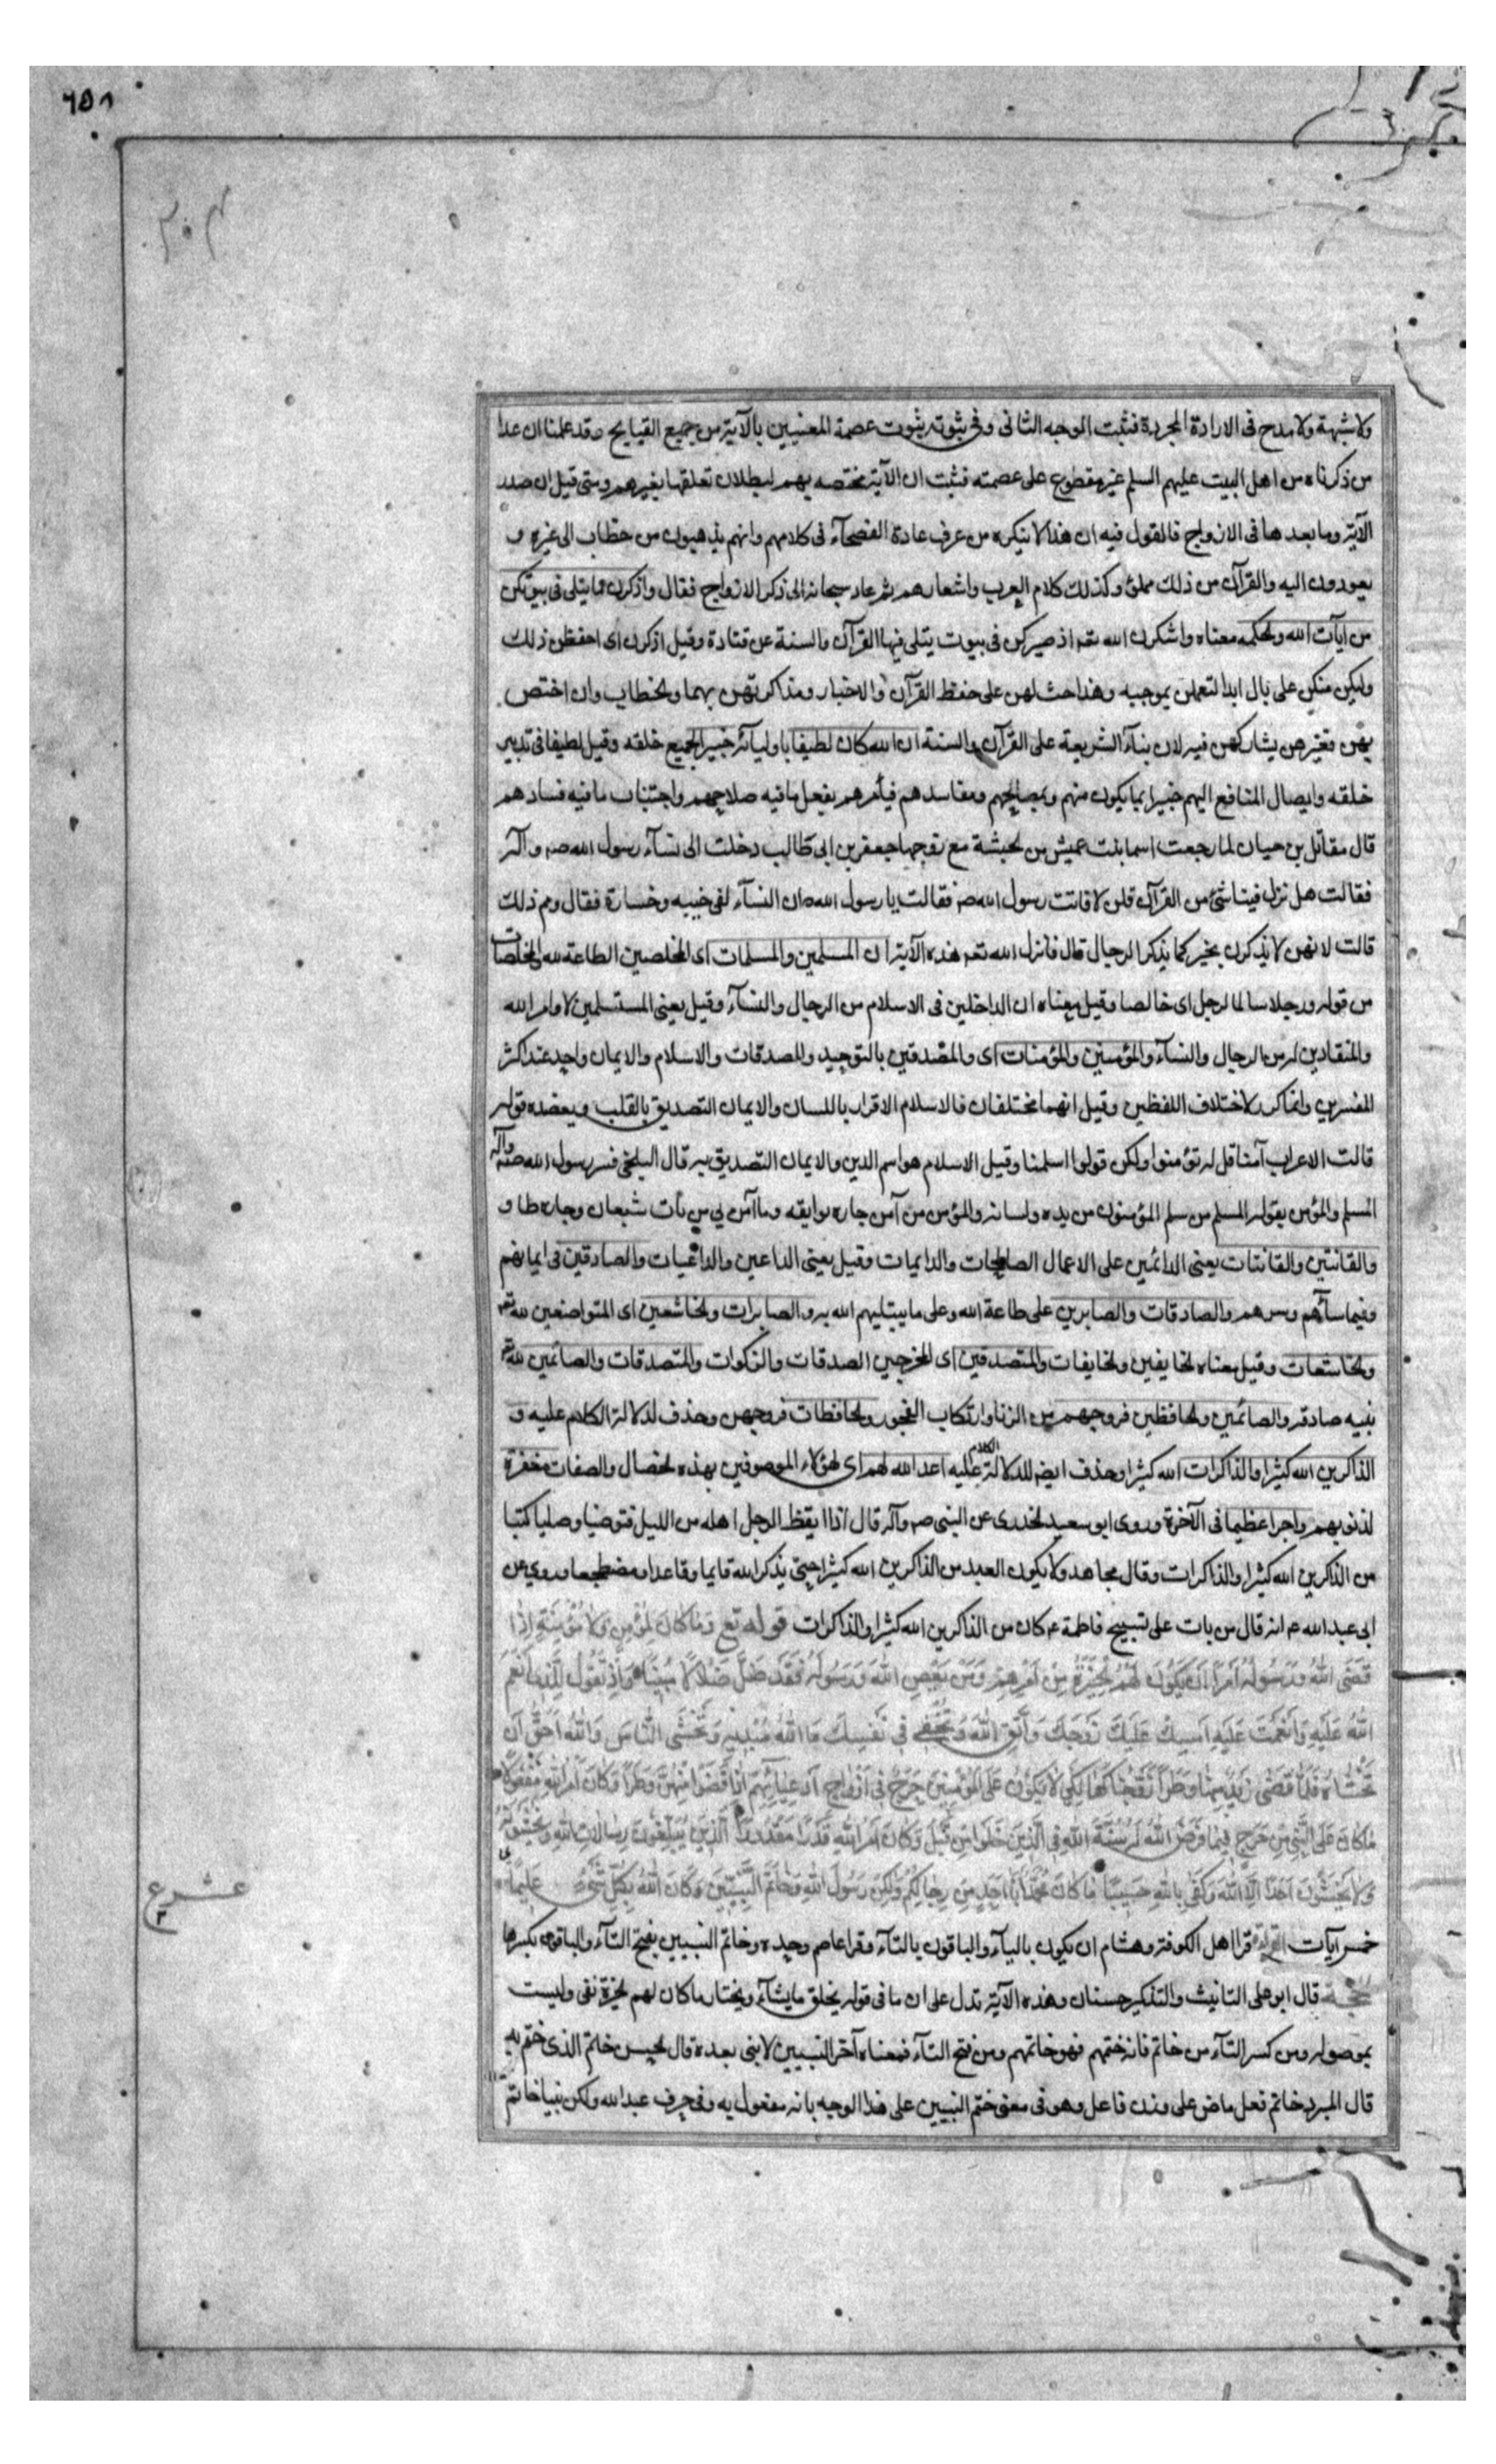 ٦٥٨
ولا شبهة ولا مدح فى الارادة المجردة فثبت الوجه الثانى وفى ثبوته ثبوت عصمة المعنيين بالآية من جميع القبايح وقد علمنا ان عدا
من ذكرناه من اهل البيت عليهم السلم غير مقطوع على عصمته فثبت ان الآية مختصه بهم لبطلان تعلقها بغيرهم ومتى قيل ان صدر
الآية وما بعدها فى الازواج فالقول فيه ان هذا لا ينكره من عرف عادة الفصحآء فى كلامهم وانهم يذهبون من خطاب الى غيره و
يعودون اليه والقرآن من ذلك مملؤ وكذلك كلام العرب واشعارهم ثم عاد سبحانه الى ذكر الازواج فقال واذكرن ما يتلى فى بيوتكن
من ايآت الله والحكمه معناه واشكرن الله تعه اذ صيركن فى بيوت يتلى فيها القرآن والسنة عن قتادة وقيل اذكرن اى احفظن ذلك
وليكن منكن على بال ابدا لتعملن بموجبه وهذا حث لهن على حفظ القرآن والاخبار ومذاكرتهن بهما والخطاب وان اختص
بهن فغيرهن يشاركهن فيه لان بنآء الشريعة على القرآن والسنة ان الله كان لطيفا باوليآئه خبيرا بجميع خلقه وقيل لطيفا فى تدبير
خلقه وايصال المنافع اليهم خبيرا بما يكون منهم وبمصالحهم ومفاسدهم فيأمرهم بفعل ما فيه صلاحهم واجتناب ما فيه فسادهم
قال مقاتل بن حيان لما رجعت اسما بنت عميس من الحبشة مع زوجها جعفر بن ابى طالب دخلت الى نسآء رسول الله صه وآله
فقالت هل نزل فينا شئ من القرآن قلن لا فاتت رسول الله صه فقالت يا رسول الله ان النسآء لفى خيبه وخسارة فقال ومم ذلك
قالت لانهن لا يذكرن بخير كما يذكر الرجال قال فانزل الله تعه هذه الآية ان المسلمين والمسلمات اى المخلصين الطاعة لله والمخلصات
من قوله ورجلا سالما لرجل اى خالصا وقيل معناه ان الداخلين فى الاسلام من الرجال والنسآء وقيل يعنى المستسلمين لاوامر الله
والمنقادين له من الرجال والنسآء والمؤمنين والمؤمنات اى والمصدقين بالتوحيد والمصدقات والاسلام والايمان واحد عند اكثر
المفسرين وانما كرر لاختلاف اللفظين وقيل انهما مختلفان فالاسلام الاقرار باللسان والايمان التصديق بالقلب ويعضده قوله
قالت الاعراب آمنا قل لم تؤمنوا ولكن قولوا اسلمنا وقيل الاسلام هو اسم الدين والايمان التصديق به قال البلخى فسر رسول الله صه وآله
المسلم والمؤمن بقوله المسلم من سلم المؤمنون من يده ولسانه والمؤمن من آمن جاره بوايقه وما آمن بى من بات شبعان وجاره طاو
والقانتين والقانتات يعنى الدائمين على الاعمال الصالحات والدايمات وقيل يعنى الداعين والداعيات والصادقين فى ايمانهم
وفيما سآءهم وسرهم والصادقات والصابرين على طاعة الله وعلى ما يبتليهم الله به والصابرات والخاشعين اى المتواضعين لله تعه
والخاشعات وقيل معناه الخايفين والخايفات والمتصدقين اى المخرجين الصدقات والزكوات والمتصدقات والصائمين لله
بنيه صادقه والصائمين والحافظين فروجهم من الزنا وارتكاب الفجور والحافظات فروجهن وحذف لدلالة الكلام عليه و
الذاكرين الله كثيرا والذاكرات الله كثيرا وحذف ايضه للدلالة الكلام عليه اعد الله لهم اى لهؤلاء الموصوفين بهذه الخصال والصفات مغفرة
لذنوبهم واجرا عظيما فى الآخرة وروى ابو سعيد الخدرى عن النبى صه وآله قال اذا ايقظ الرجل اهله من الليل فتوضيا وصليا كتبا
من الذاكرين الله كثيرا والذاكرات وقال مجاهد ولا يكون العبد من الذاكرين الله كثيرا حتى يذكر الله قايما وقاعدا ومضطجعا وروى عن
ابى عبد الله عه انه قال من بات على تسبيح فاطمة عه كان من الذاكرين الله كثيرا والذاكرات قوله تع وَمَا كَانَ لِمُؤْمِنٍ وَلَا مُؤْمِنَةٍ اِذَا
قَضَى اللهُ وَرَسُولُهُ اَمْرًا اَنْ يَكُونَ لَهُمُ الْخِيَرَةُ مِنْ اَمْرِهِمْ وَمَنْ يَعْصِ اللهَ وَرَسُولَهُ فَقَدْ ضَلَّ ضَلَالًا مُبِينًا وَاِذْ تَقُولُ لِلَّذِى اَنْعَمَ
اللهُ عَلَيْهِ وَاَنْعَمْتَ عَلَيْهِ اَمْسِكْ عَلَيْكَ زَوْجَكَ وَاتَّقِ اللهَ وَتُخْفِى فِى نَفْسِكَ مَا اللهُ مُبْدِيهِ وَتَخْشَى النَّاسَ وَاللهُ اَحَقُّ اَنْ
تَخْشَاهُ فَلَمَّا قَضَى زَيْدٌ مِنْهَا وَطَرًا زَوَّجْنَاكَهَا لِكَىْ لَا يَكُونَ عَلَى الْمُؤْمِنِينَ حَرَجٌ فِى اَزْوَاجِ اَدْعِيَائِهِمْ اِذَا قَضَوْا مِنْهُنَّ وَطَرًا وَكَانَ اَمْرُ اللهِ مَفْعُولًا
مَا كَانَ عَلَى النَّبِىِّ مِنْ حَرَجٍ فِيمَا فَرَضَ اللهُ لَهُ سُنَّةَ اللهِ فِى الَّذِينَ خَلَوْا مِنْ قَبْلُ وَكَانَ اَمْرُ اللهِ قَدَرًا مَقْدُورًا الَّذِينَ يُبَلِّغُونَ رِسَالَاتِ اللهِ وَيَخْشَوْنَهُ
وَلَا يَخْشَوْنَ اَحَدًا اِلَّا اللهَ وَكَفَى بِاللهِ حَسِيبًا مَا كَانَ مُحَمَّدٌ اَبَا اَحَدٍ مِنْ رِجَالِكُمْ وَلَكِنْ رَسُولَ اللهِ وَخَاتَمَ النَّبِيِّينَ وَكَانَ اللهُ بِكُلِّ شَىْءٍ عَلِيمًا
عشر ع
خمس آيات القرآءة قرا اهل الكوفة وهشام ان يكون باليآء والباقون بالتآء وقرا عاصم وحده وخاتم النبيين بفتح التآء والباقون بكسرها
الحجة قال ابو على التانيث والتذكير حسنان وهذه الآية تدل على ان ما فى قوله يخلق ما يشآء ويختار ما كان لهم الخيرة نفى وليست
بموصوله ومن كسر التآء من خاتم فانه ختمهم فهو خاتمهم ومن فتح التآء فمعناه آخر النبيين لا نبى بعده قال الحسن خاتم الذى ختم به
قال المبرد خاتم فعل ماض على وزن فاعل وهو فى معنى ختم النبيين على هذا الوجه بانه مفعول به وفى حرف عبد الله ولكن نبيا خاتم